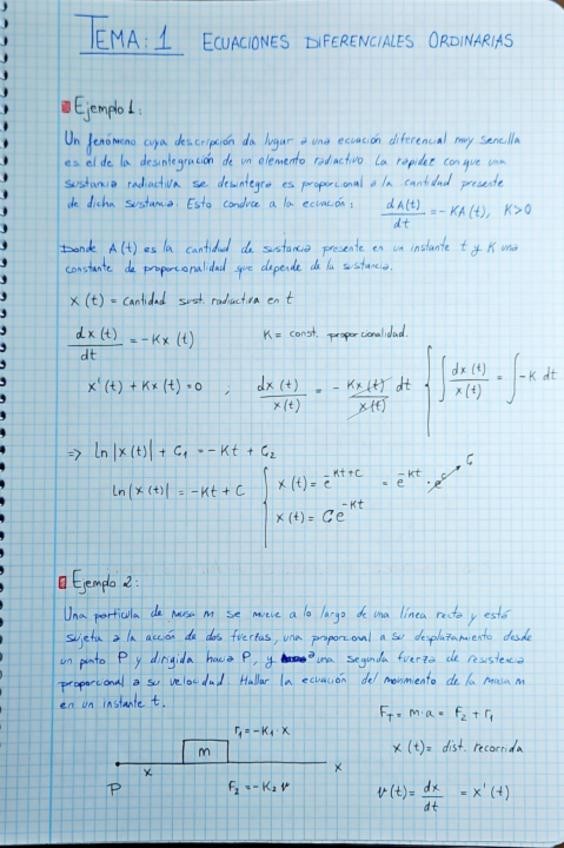 TEMA: 1 ECUACIONES DIFERENCIALES ORDINARIAS
Ejemplo 1:
Un fenómeno cuya descripción da lugar a una ecuación diferencial muy sencilla
es el de la desintegración de un elemento radiactivo. La rapidez con que una
sustancia radiactiva se desintegra es proporcional a la cantidad presente
de dicha sustancia. Esto conduce a la ecuación: dA(t)/dt = -KA(t), K>0
Donde A(t) es la cantidad de sustancia presente en un instante t y K una
constante de proporcionalidad que depende de la sustancia.
x(t) = cantidad sust. radiactiva en t
dx(t)/dt = -Kx(t) K = const. proporcionalidad.
x'(t) + Kx(t) = 0 ; dx(t)/x(t) = - Kx(t)/x(t) dt { ∫ dx(t)/x(t) = ∫ -K dt
=> ln|x(t)| + C₁ = -Kt + C₂
ln|x(t)| = -Kt + C { x(t) = e^(-Kt+C) = e^(-Kt) · e^C → C
x(t) = Ce^(-Kt)
Ejemplo 2:
Una partícula de masa m se mueve a lo largo de una línea recta y está
sujeta a la acción de dos fuerzas, una proporcional a su desplazamiento desde
un punto P y dirigida hacia P, y una segunda fuerza de resistencia
proporcional a su velocidad. Hallar la ecuación del movimiento de la masa m
en un instante t.
F_T = m·a = F₂ + F₁
F₁ = -K₁·x
m
x(t) = dist. recorrida
x x
P F₂ = -K₂ v
v(t) = dx/dt = x'(t)